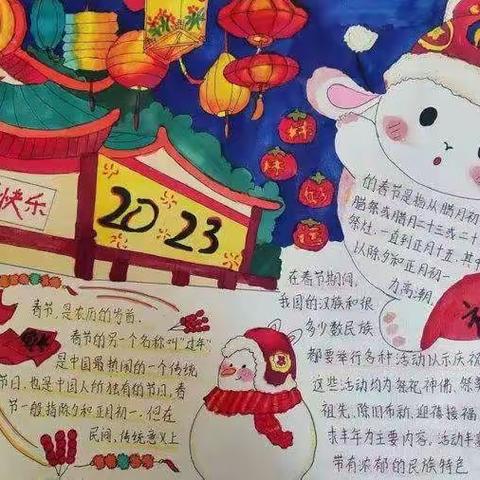 快乐
2023
春节,是农历的岁首,
春节的另一个名称叫"过年"
是中国最热闹的一个传统
节日,也是中国人所独有的节日,春
节一般指除夕和正月初一.但在
民间,传统意义上
的春节是指从腊月初
腊祭或腊月二十三或二十
祭灶,一直到正月十五,其中
以除夕和正月初一
为高潮.
在春节期间,
我国的汉族和很
多少数民族
都要举行各种活动以示庆祝
这些活动均为祭祀神佛、祭奠
祖先、除旧布新、迎禧接福
求丰年为主要内容,活动丰
带有浓郁的民族特色